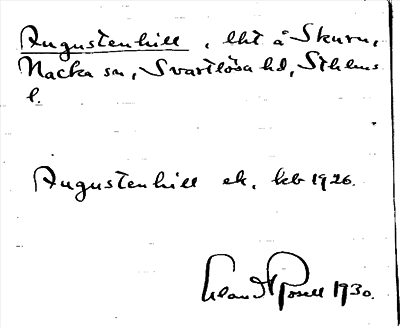 Augustenhill, lht å Skuru,
Nacka sn, Svartlösa hd, Sthlms
l.
Augustenhill ek. kb 1926.
1930.